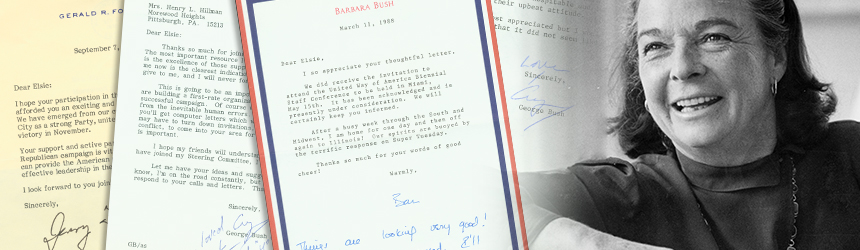 GERALD R. FO
September 7,
Dear Elsie:
I hope your participation in th
afforded you an exciting and
We have emerged from our e
City as a strong Party, unite
victory in November.
Your support and active pa
Republican campaign is vit
can provide the American
effective leadership in the
I look forward to you join
Sincerely,
Jerry
Mrs. Henry L. Hillman
Morewood Heights
Pittsburgh, PA. 15213
Dear Elsie:
Thanks so much for joi
The most important resource
is the excellence of those sup
me now is the clearest indicatio
give to me, and I will never fo
This is going to be an impo
are building a first-rate organi
successful campaign. Of course
from the inevitable human errors
you'll get computer letters which w
may have to turn down invitations
conflict, to come into your area fo
is important.
I hope my friends will understa
have joined my Steering Committee.
Let me have your ideas and sugg
know, I'm on the road constantly, but
respond to your calls and letters. T
Sincerely,
George Bush
GB/as
BARBARA BUSH
March 11, 1988
Dear Elsie,
I so appreciate your thoughtful letter.
We did receive the invitation to
attend the United Way of America Biennial
Staff Conference to be held in Miami,
May 15th. It has been acknowledged and is
presently under consideration. We will
certainly keep you informed.
After a busy week through the South and
Midwest, I am home for one day and then off
again to Illinois! Our spirits are buoyed by
the terrific response on Super Tuesday.
Thanks so much for your words of good
cheer!
Warmly,
Bar
Things are looking very good!
their upbeat attitude
ost appreciated but I
that it did not seem
Love
Sincerely,
George Bush